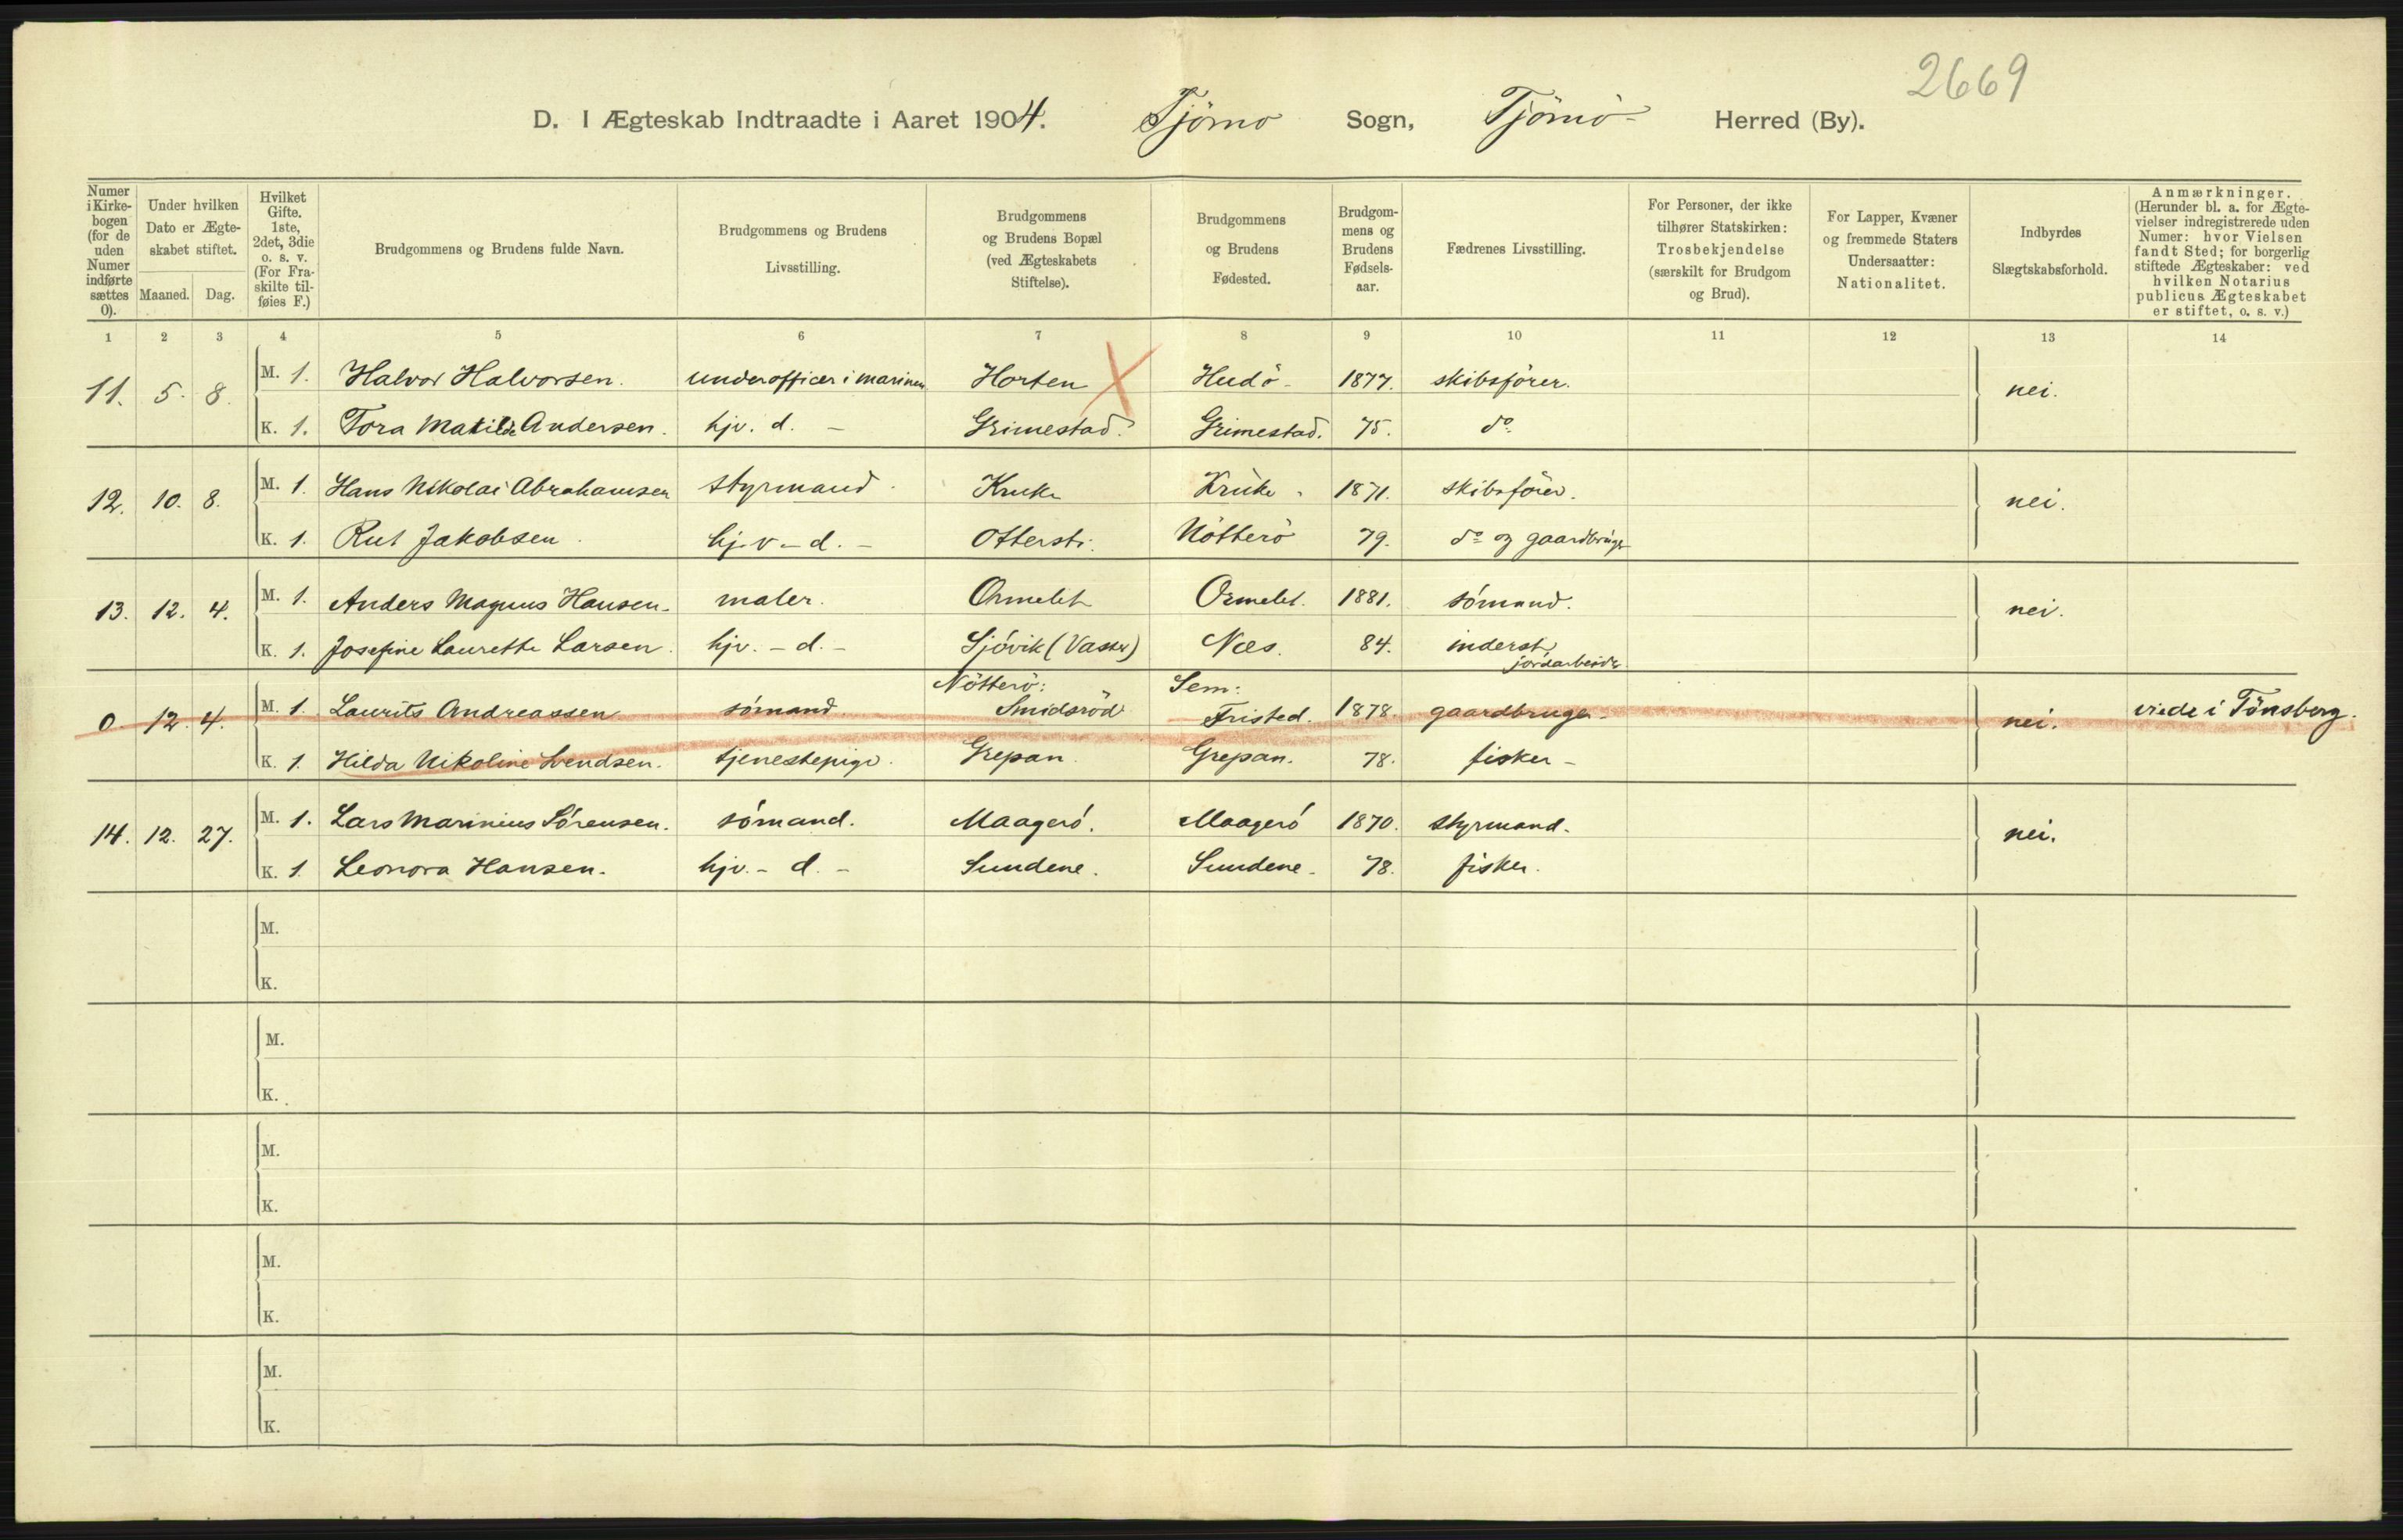 2669
D. I Ægteskab Indtraadte i Aaret 1904. Tjömo Sogn, Tjömö Herred (By).
Numer i Kirkebogen (for de uden Numer indførte sættes 0). Under hvilken Dato er Ægteskabet stiftet. Maaned. Dag. Hvilket Gifte. 1ste, 2det, 3die o. s. v. (For Fraskilte tilføies F.) Brudgommens og Brudens fulde Navn. Brudgommens og Brudens Livsstilling. Brudgommens og Brudens Bopæl (ved Ægteskabets Stiftelse). Brudgommens og Brudens Fødested. Brudgommens og Brudens Fødselsaar. Fædrenes Livsstilling. For Personer, der ikke tilhører Statskirken: Trosbekjendelse (særskilt for Brudgom og Brud). For Lapper, Kvæner og fremmede Staters Undersaatter: Nationalitet. Indbyrdes Slægtskabsforhold. Anmærkninger. (Herunder bl. a. for Ægtevielser indregistrerede uden Numer: hvor Vielsen fandt Sted; for borgerlig stiftede Ægteskaber: ved hvilken Notarius publicus Ægteskabet er stiftet, o. s. v.)
1 2 3 4 5 6 7 8 9 10 11 12 13 14
11. 5. 8. M. 1. Halvor Halvorsen. underofficer i marinen Horten Hudö 1877. skibsfører. nei.
K. 1. Tora Matilde Andersen. hjv. d. – Grimestad. Grimestad. 75. do
12. 10. 8. M. 1. Hans Nikolai Abrahamsen styrmand. Kruke Kruke 1871. skibsfører. nei.
K. 1. Rut Jakobsen. hjv – d. – Otterst. Nötterö 79. do og gaardbruger
13. 12. 4. M. 1. Anders Magnus Hansen. maler. Ormelet Ormelet. 1881. sömand. nei.
K. 1. Josefine Laurette Larsen. hjv. – d. – Sjövik (Vasser) Næs. 84. inderst, jordarbeider.
0 12. 4. M. 1. Laurits Andreassen sömand Nötterö: Smidsröd Sem: Fristed. 1878. gaardbruger – nei. viede i Tönsberg.
K. 1. Hilda Nikoline Svendsen. tjenestepige. Grepan. Grepan. 78. fisker –
14. 12. 27. M. 1. Lars Marinius Sörensen. sömand. Maagerö. Maagerö 1870. styrmand. nei.
K. 1. Leonora Hansen. hjv. – d. – Sundene. Sundene. 78. fisker.
M.
K.
M.
K.
M.
K.
M.
K.
M.
K.